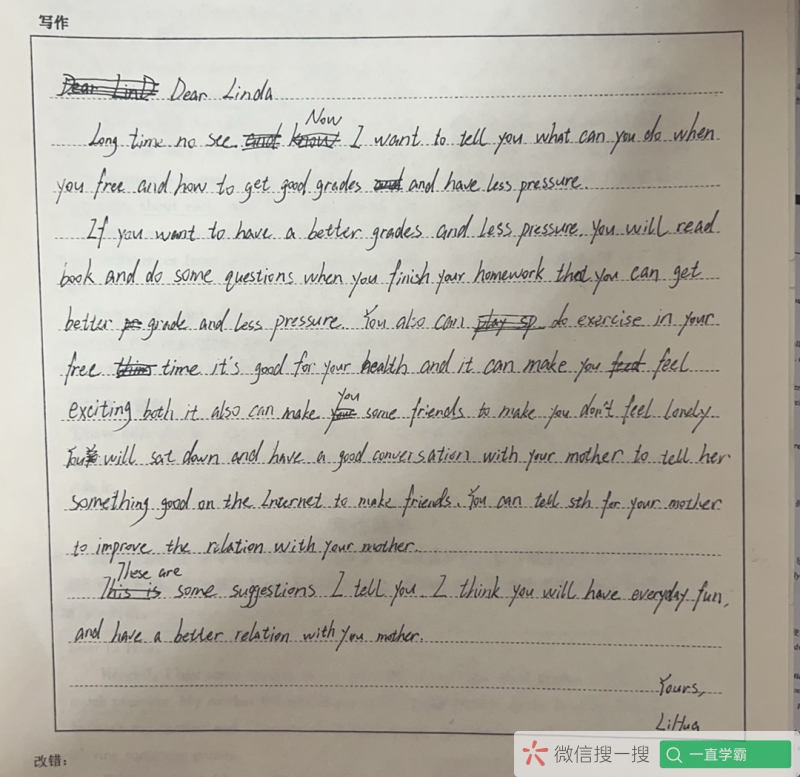 写作
Dear LinD Dear Linda
Now
Long time no see and know I want to tell you what can you do when
you free and how to get good grades and and have less pressure.
If you want to have a better grades and less pressure, you will read
book and do some questions when you finish your homework that you can get
better grade and less pressure. You also can play sp do exercise in your
free time it's good for your health and it can make you feel
you
exciting both it also can make your some friends to make you don't feel lonely
You will sat down and have a good conversation with your mother to tell her
something good on the Internet to make friends. You can tell sth for your mother
to improve the relation with your mother.
These are
This is some suggestions I tell you. I think you will have everyday fun,
and have a better relation with you mother.
Yours,
LiHua
改错:
微信搜一搜 一直学霸